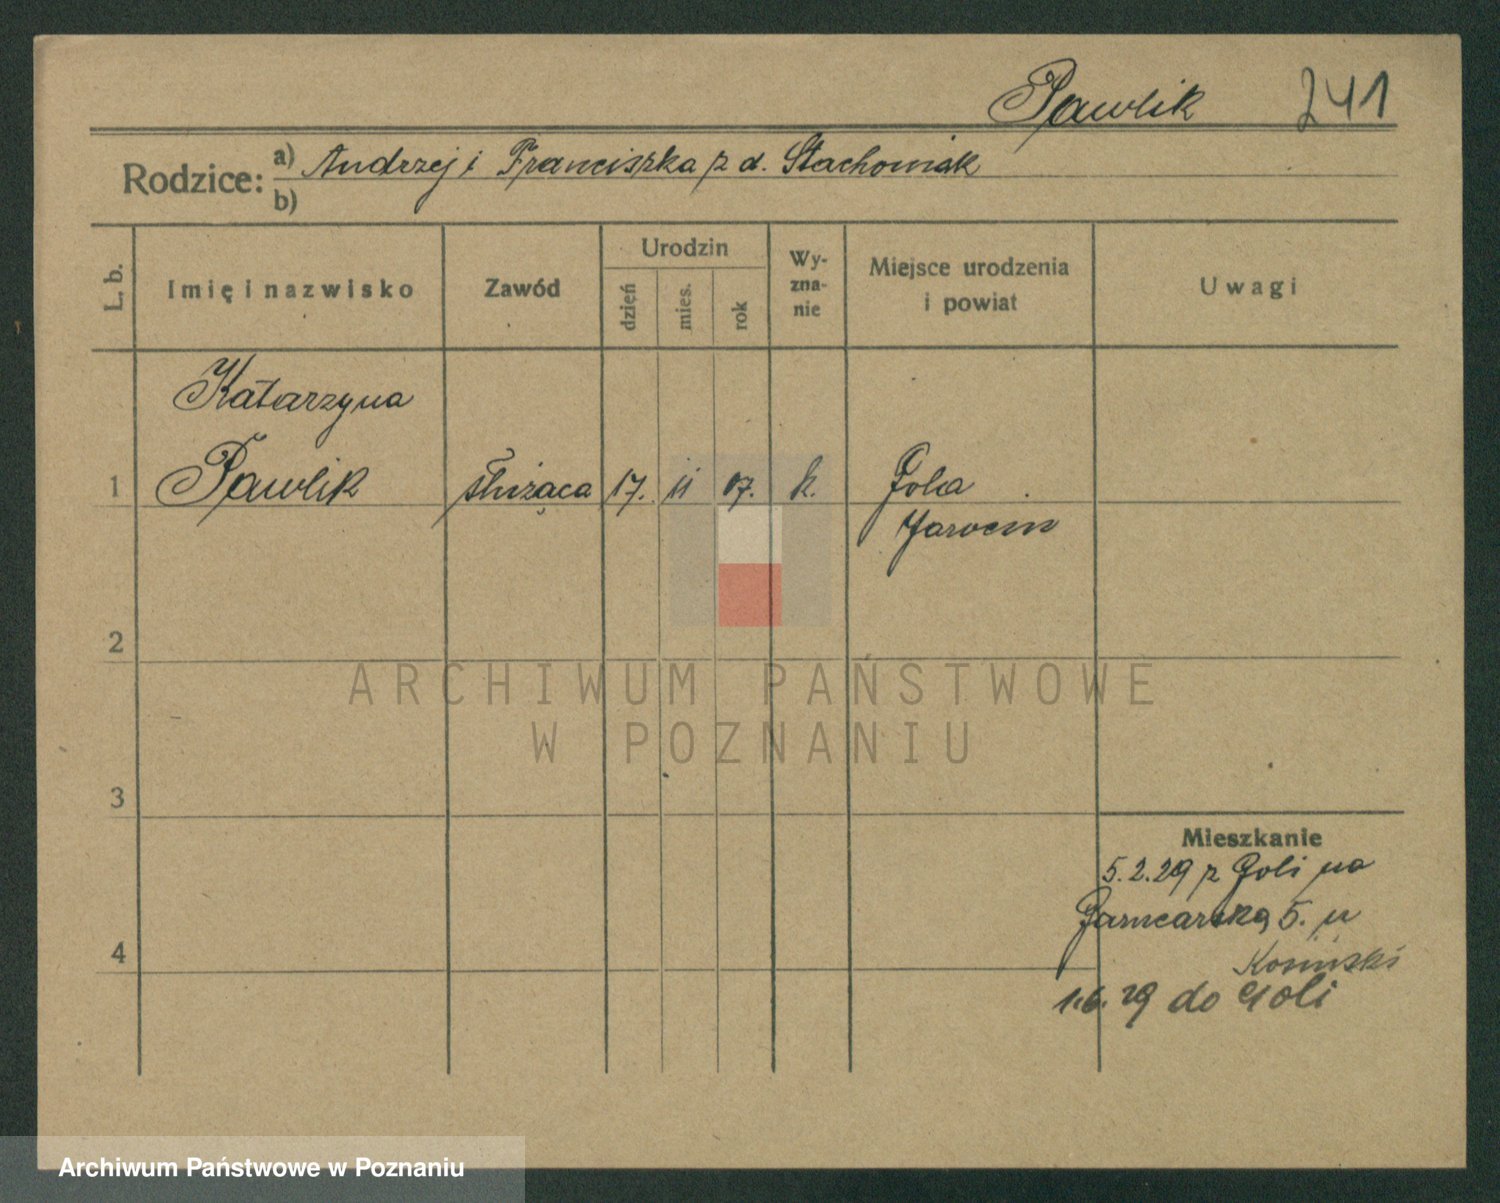 Pawlik 241
Rodzice: a) Andrzej i Franciszka z d. Stachowiak
b)
L. b. Imię i nazwisko Zawód Urodzin dzień mies. rok Wy-zna-nie Miejsce urodzenia i powiat Uwagi
Katarzyna
1 Pawlik służąca 17. 11 07. k. Gola
Jarocin
2
ARCHIWUM PAŃSTWOWE
W POZNANIU
3
Mieszkanie
5.2.29 z Goli na
Garncarską 5. u
4
Kosiński
1.6.29 do Goli
Archiwum Państwowe w Poznaniu